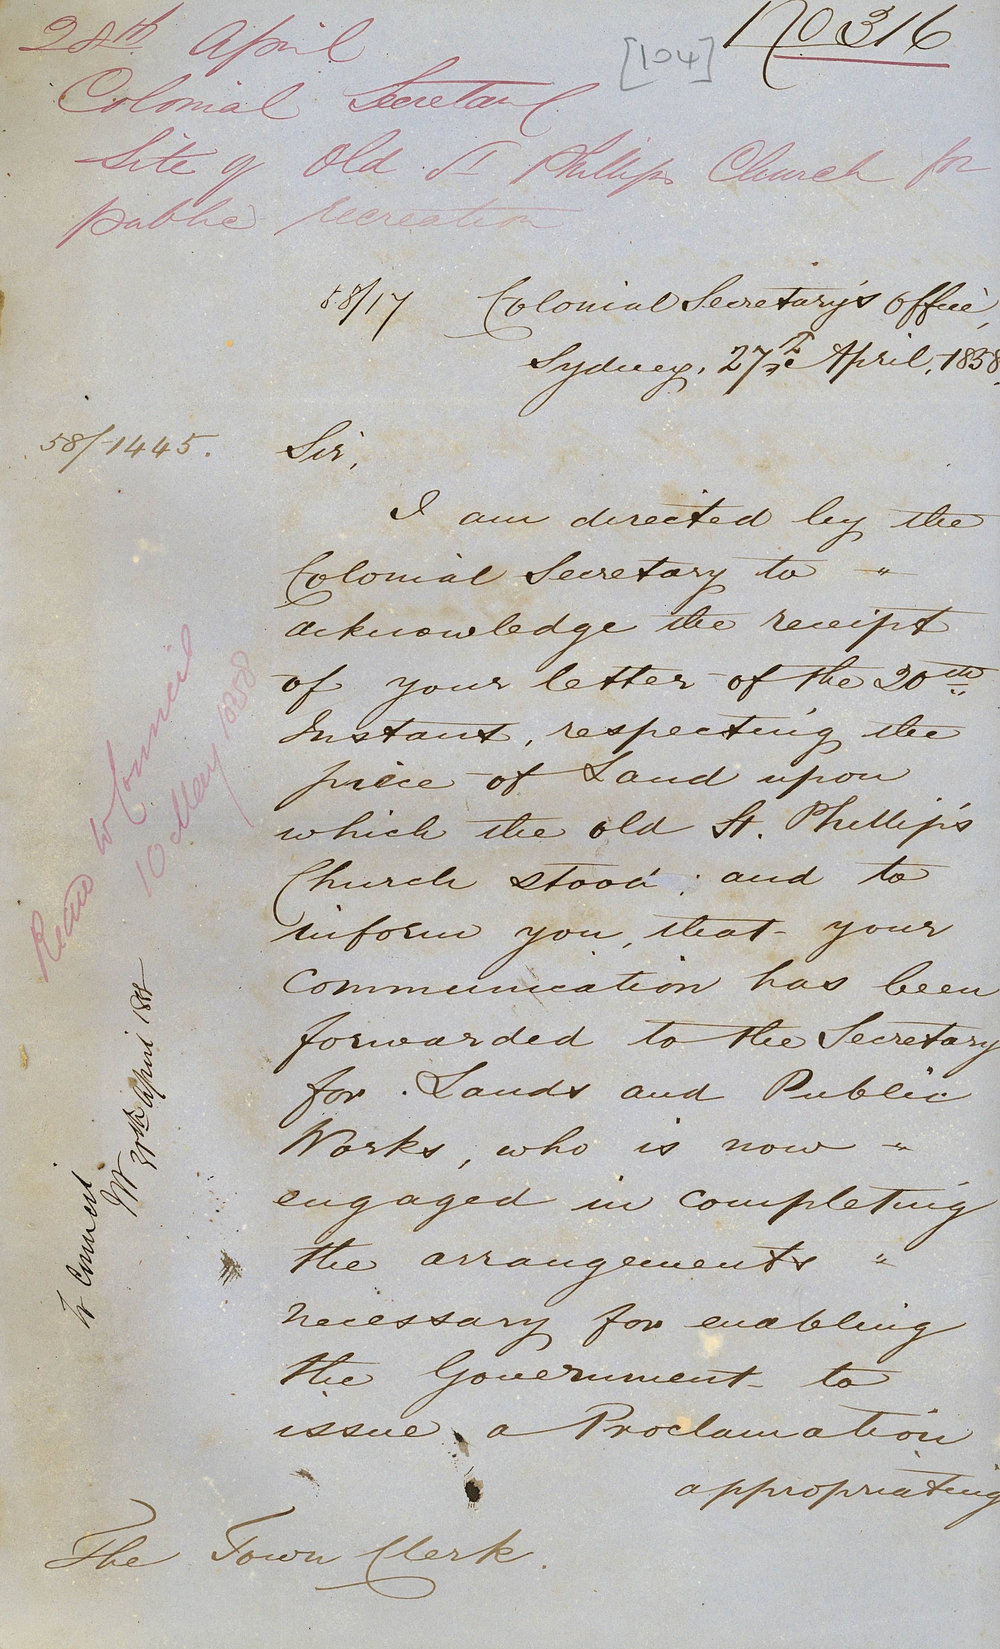 28th April
[104]
No 316
Colonial Secretary
Site of Old St Phillips Church for
public recreation
58/17 Colonial Secretary's Office,
Sydney, 27th April, 1858.
58/1445.
Sir,
I am directed by the
Colonial Secretary to "
acknowledge the receipt
of your letter of the 20th
Instant, respecting the
piece of Land upon
which the old St. Phillip's
Church stood; and to
inform you, that your
communication has been
forwarded to the Secretary
for Lands and Public
Works, who is now "
engaged in completing
the arrangements "
necessary for enabling
the Government to
issue a Proclamation
appropriating
The Town Clerk.
Read to Council
10 May 1858
To Council
April 1858